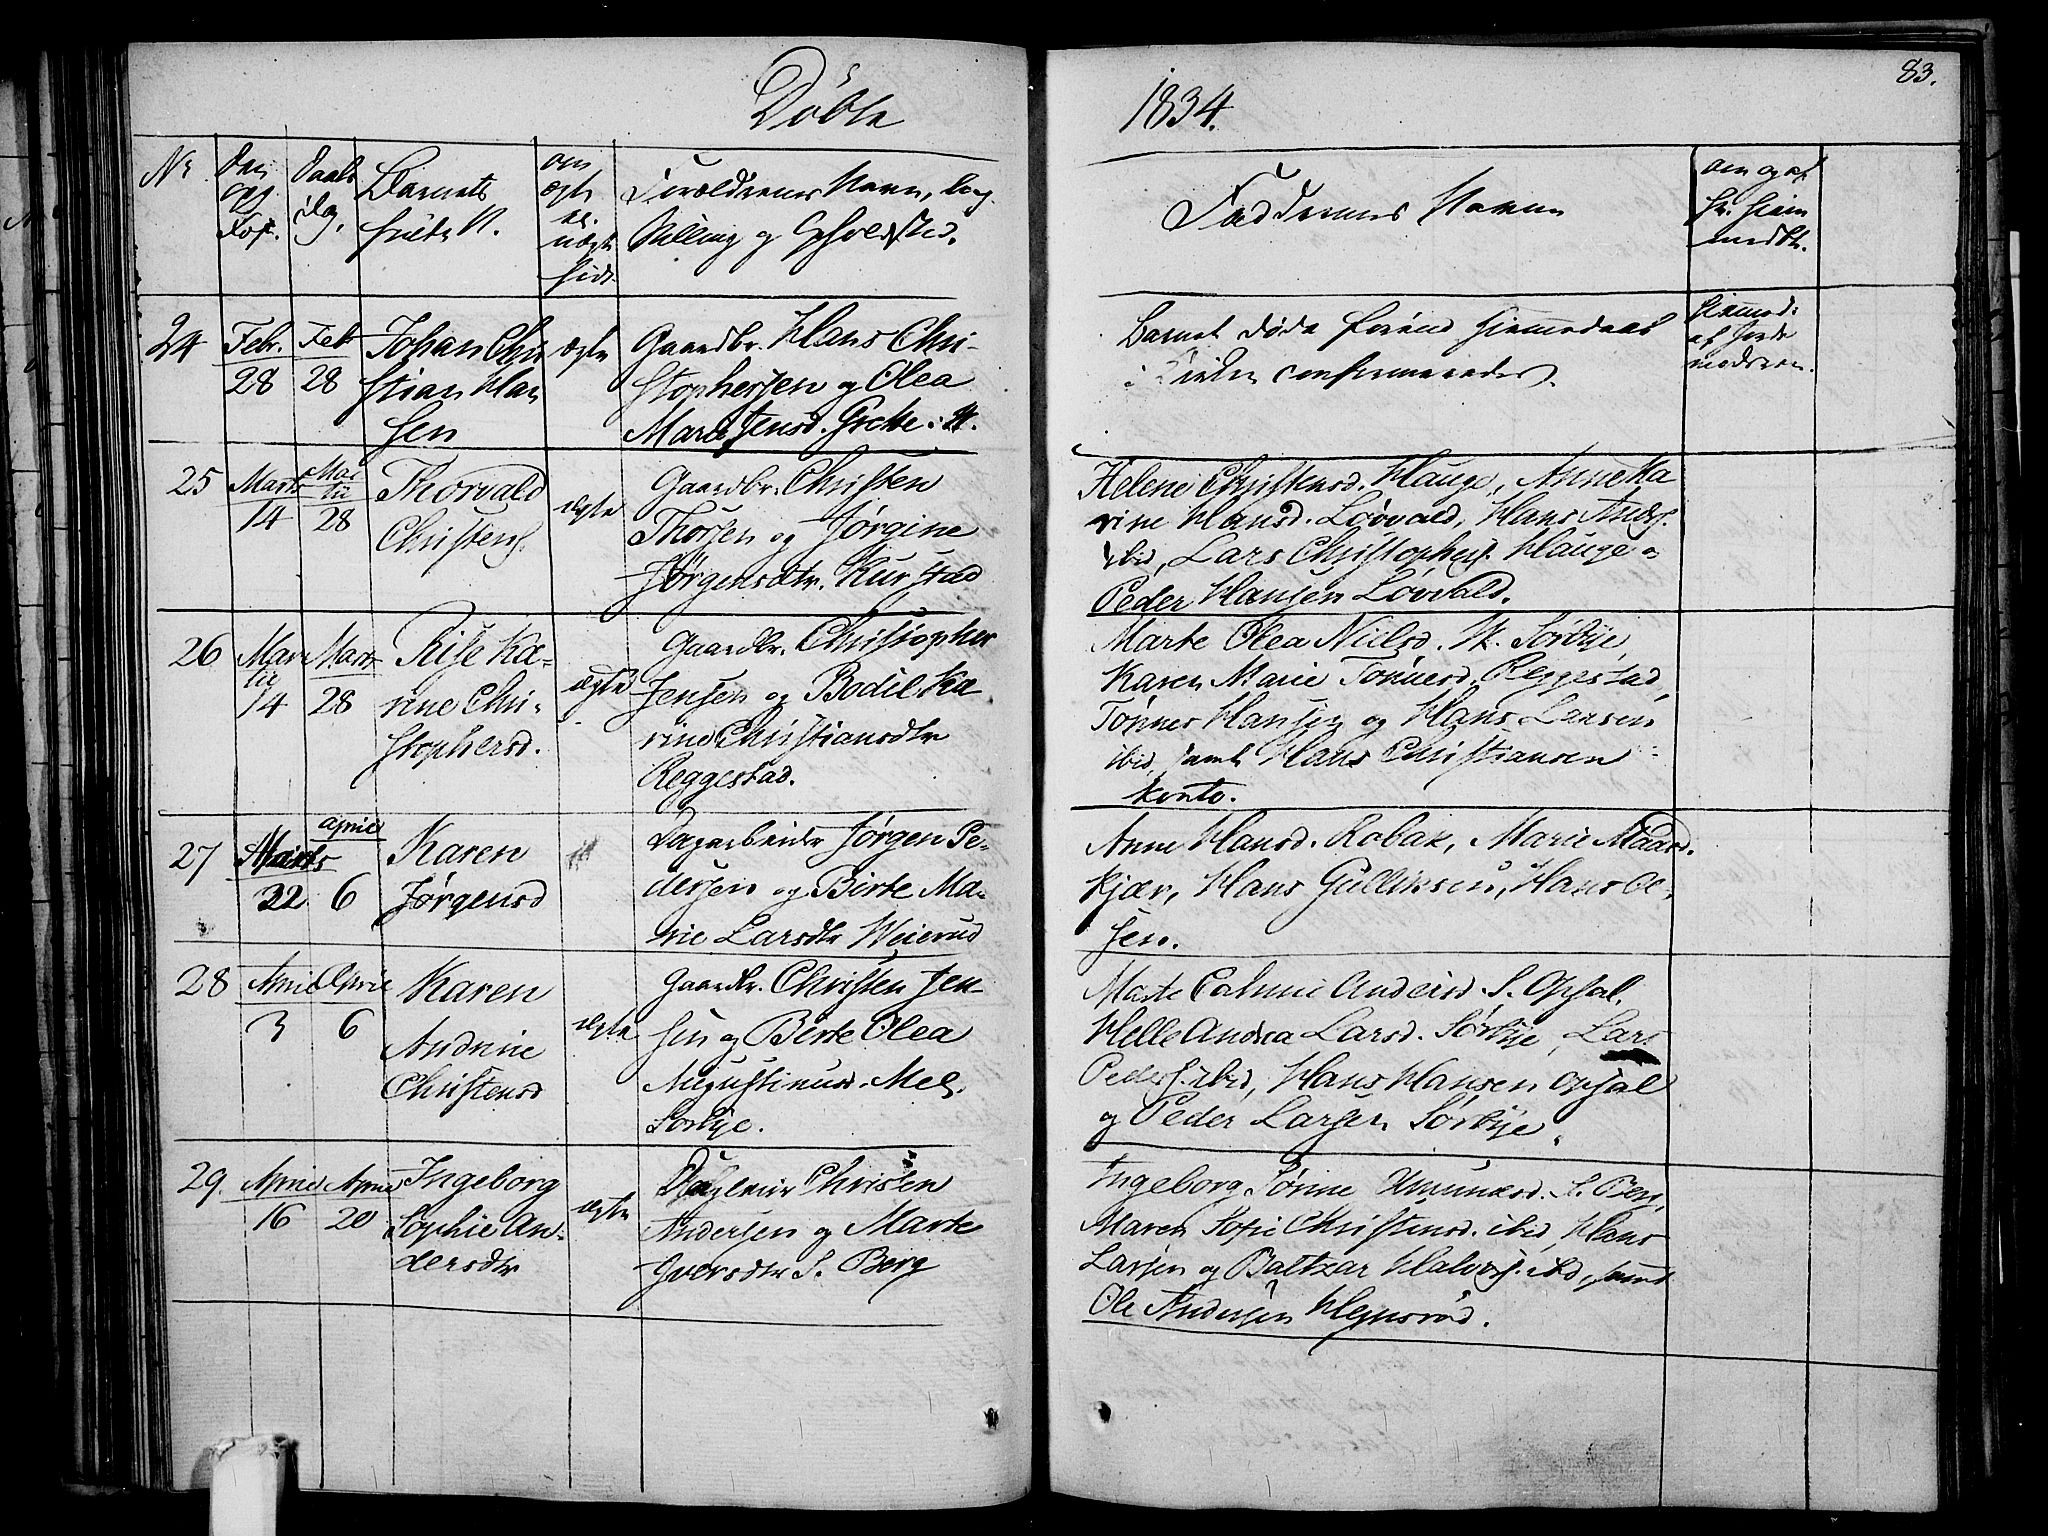 Døbte
1834.
83.
Nr
Dag
Daab
Barnets
fulde N.
om
ægte
el.
uægte
født.
Forældrenes Navn, Borg.
Stilling og Opholdsted.
Faddernes Navne
om og af
hv. hiem
medbt.
24
Febr.
28
Febr
28
Johan Chri
stian Han
sen
ægte
Gaardbr. Hans Chri-
stophersen og Olea
Marie Jensd.
Barnet døde førend Hiemmedaab
i Kirken confirmeredes.
hiemmed.
af Jorde
moderen.
25
Marts
14
Mar
tii
28
Thorvald
Christens.
ægte
Gaardbr. Christen
Thorsen og Jørgine
Jørgensdtr. Kurstad
Helene Christensd. Hauge, Anne Ka
rine Hansd. Løvvald, Hans Anders.
ibid, Lars Christophers. Hauge o
Peder Hansen Løvvald.
26
Mar
tii
14
Marts
28
Ka-
rine Chri-
stophersd.
ægte
Gaardbr. Christopher
Jensen og Bodil Ka
rine Christiansdtr
Reggestad.
Marte Olea Nielsd. N. Sørbye,
Karen Marie Tønnesd. Reggestad,
Tønnes Hansen og Hans Larsen
ibid, samt Hans Christiansen
27
Marts
22
April
6
Karen
Jørgensd
Dagarbeider Jørgen Pe-
dersen og Birte Ma-
rie Larsdtr Weierud
Anne Hansd. Robak, Marie
Kjær, Hans Gulliksen, Hans Ol-
sen.
28
April
3
April
6
Karen
Andrine
Christensd
ægte
Gaardbr. Christen Jen-
sen og Birte Olea
Augustinusd. Mel.
Sørbye.
Marte Andersd. S. Opsal.
Helle Andrea Larsd. Sørbye, Lars
Peders. ibid, Hans Hansen Opsal
og Peder Larsen Sørbye.
29.
April
16
April
20
Ingeborg
Sophie An-
dersdtr
ægte
Christen
Andersen og Marte
Iversdtr S. Berg
Ingeborg Sørine S. Berg,
Maren Sofie Christensd. ibid, Hans
Larsen og Baltzar Halvors. ibid, samt
Ole Andersen